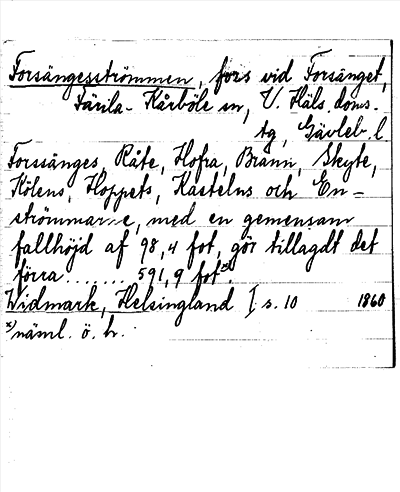 Forsängesströmmen, fors vid Forsänget,
Färila-Kårböle sn, V. Häls. doms.
tg, Gävleb. l.
Forssänges, Råte, Hofra, Brånn, Skyte,
Kölens, Hoppets, Kastelns och En-
strömmarne, med en gemensam
fallhöjd af 98,4 fot, gör tillagdt det
förra....... 591,9 fot x).
Widmark, Helsingland I s. 10 1860
x) näml. ö. h.